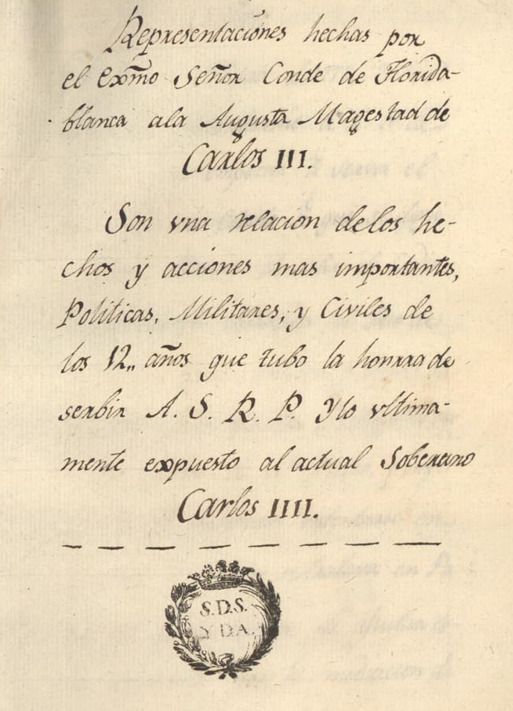 Representaciones hechas por
el Exm̃o Señor Conde de Florida-
blanca ala Augusta Magestad de
Carlos III.
Son vna relacion delos he-
chos y acciones mas importantes,
Politicas, Militares, y Civiles de
los 12,, años que tubo la honrra de
serbir A. S. R. P. Y lo vltima-
mente expuesto al actual Soberano
Carlos IIII.
S.D.S.
Y D.A.